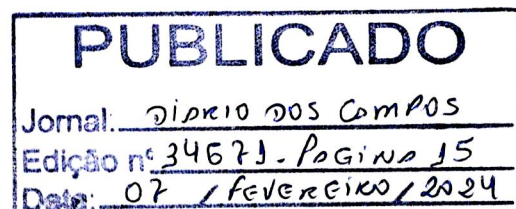 PUBLICADO
Jornal: DIÁRIO DOS CAMPOS
Edição nº 34671 - PAGINA 15
Data: 07 / FEVEREIRO / 2024